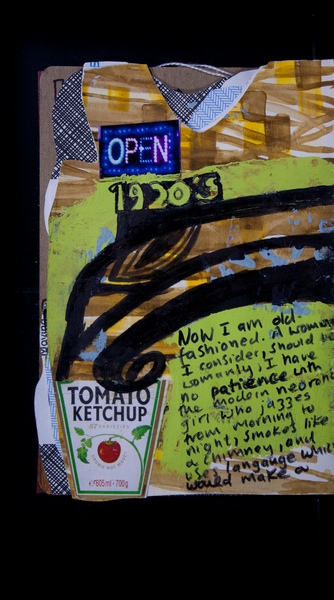 OPEN
1920's
Now I am old
fashioned. A woman
I consider, should be
womanly, I have
no patience with
the modern neurotic
girl who jazzes
from morning to
night, smokes like
a chimney, and
uses langauge which
would make a
TOMATO
KETCHUP
57 VARIETIES
GROWN NOT MADE
e 605 ml - 700g